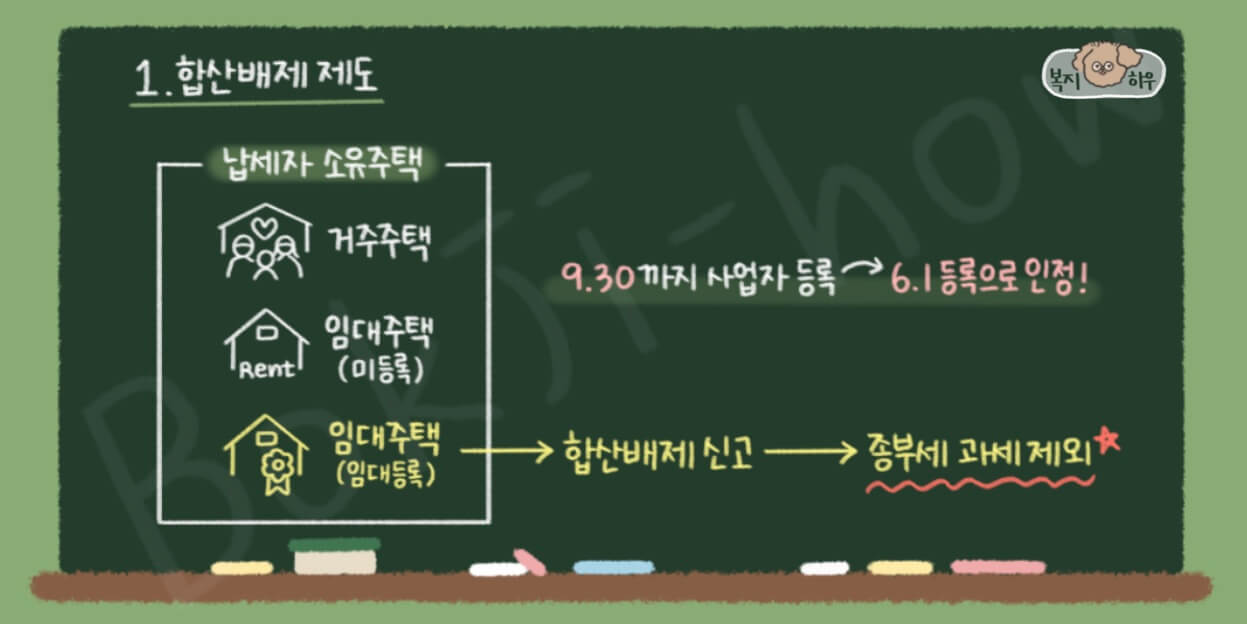 1. 합산배제 제도
복지 하우
납세자 소유주택
거주주택
9.30까지 사업자 등록 → 6.1 등록으로 인정!
Rent
임대주택
(미등록)
임대주택
(임대등록)
→ 합산배제 신고 → 종부세 과세 제외
Bokji-how